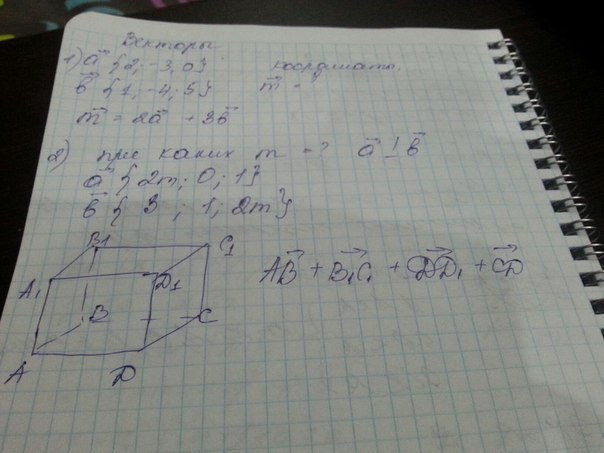 Векторы
1) a⃗ {2; -3; 0} координаты.
b⃗ {1; -4; 5} m⃗ = ?
m⃗ = 2a⃗ + 3b⃗
2) при каких m = ? a⃗ ⊥ b⃗
a⃗ {2m; 0; 1}
b⃗ {3; 1; 2m}
B1 C1
A1 D1
B C
A D
AB⃗ + B₁C₁⃗ + DD₁⃗ + CD⃗